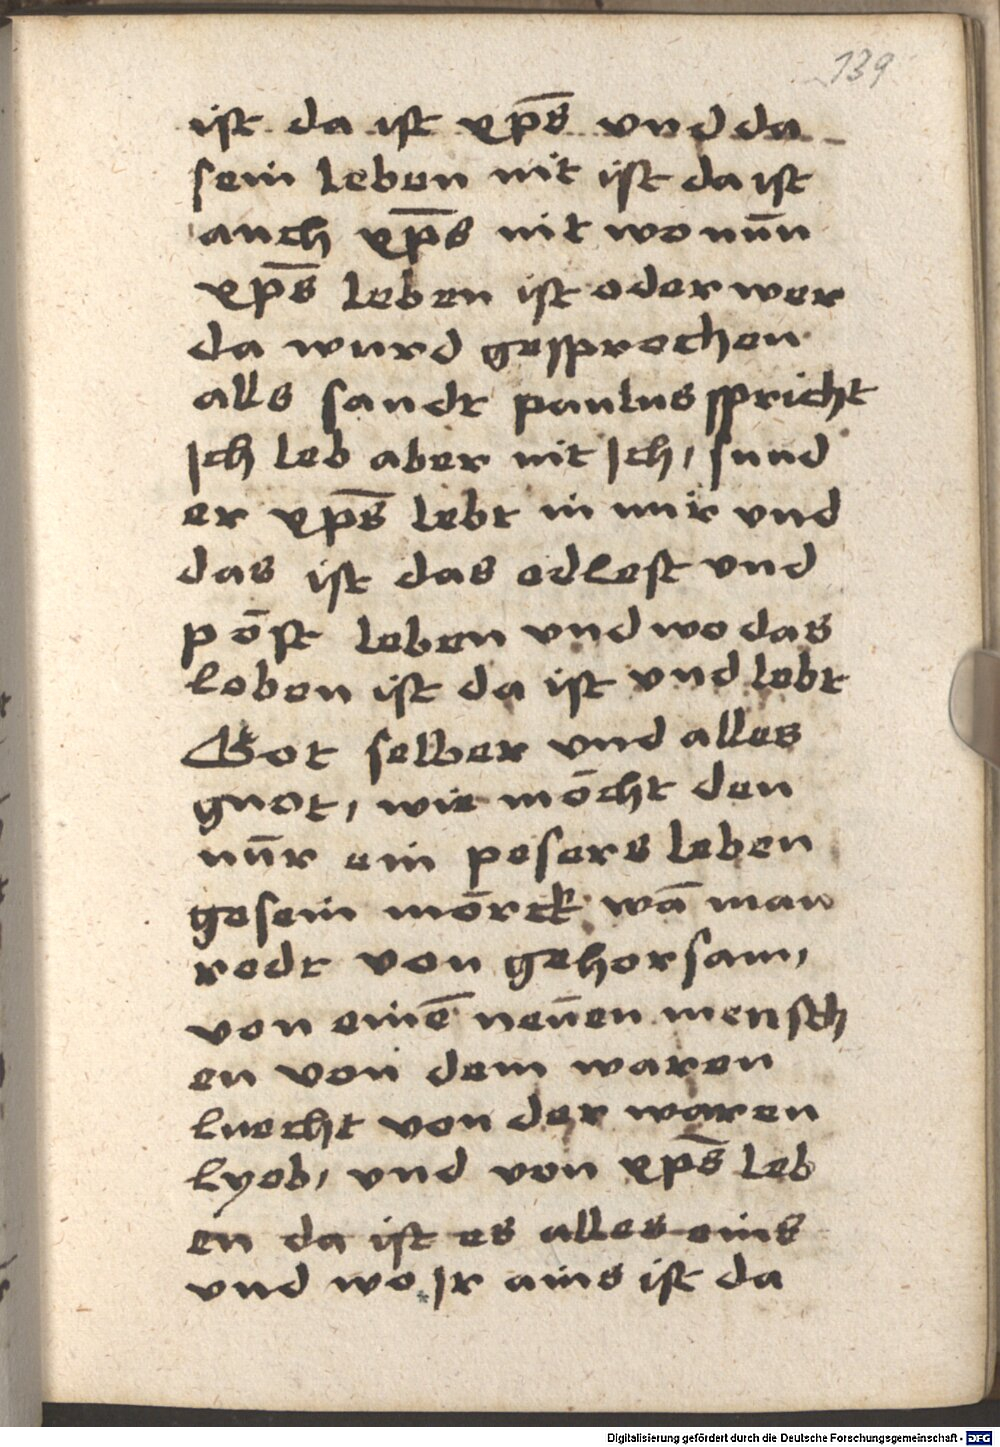 139
ist da ist xp̄s vnd da
sein leben nit ist da ist
auch xp̄s nit wo nūn
xp̄s leben ist oder wer
da wurd gesprochen
alls sandt paulus spricht
Ich leb aber nit Ich, sund
er xp̄s lebt in mir vnd
das ist das edlest vnd
pōst leben vnd wo das
leben ist da ist vnd lebt
Got selber vnd alles
guot, wie mōcht den
nūr ein pesers leben
gesein mōrck wā man
redt von gehorsam,
von einē neūen mensch
en von dem waren
luecht von der waren
lyeb, vnd von xp̄s leb
en da ist es alles eins
vnd wo Ir ains ist da
Digitalisierung gefördert durch die Deutsche Forschungsgemeinschaft - DFG